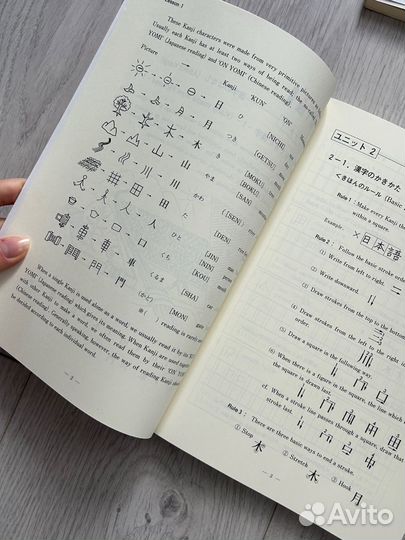 Lesson 1
These Kanji characters were made from very primitive pictures
Usually each Kanji has at least two ways of being read; the
YOMI' (Japanese reading) and 'ON YOMI' (Chinese reading).
Picture → Kanji 'KUN' 'ON'
日 ひ [NICHI]
月 つき [GETSU]
木 き [MOKU]
山 やま [SAN]
川 かわ [SEN]
田 た [DEN]
人 ひと [JIN] [NIN]
口 くち [KOU]
車 くるま [SHA]
門 (かど) [MON]
When a single Kanji is used alone as a word, we usually read it by its
YOMI' (Japanese reading) which gives its meaning. When Kanji are used
with other Kanji to make a word, we often read them by their 'ON YOMI'
(Chinese reading). Generally speaking, however, the way of reading Kanji
be decided according to each individual word.
— 2 —
ユニット 2
2-1. 漢字のかきかた
<きほんのルール (Basic
Rule 1 : Make every Kanji
within a square.
Example: × 日本語
Rule 2 : Follow the basic stroke order
(1) Write from left to right.
(2) Write downward.
(3) Draw strokes from the top to the bottom
(4) Draw strokes from the left to the right
order.
(5) Draw a square in the following way.
(6) When there is a figure in the square, the line which
the square is drawn last.
cf. When a stroke line passes through a square, draw that
stroke last.
Rule 3 : There are three basic ways to end a stroke.
① Stop 木 ② Stretch 木 ③ Hook 月
— 3 —
Avito